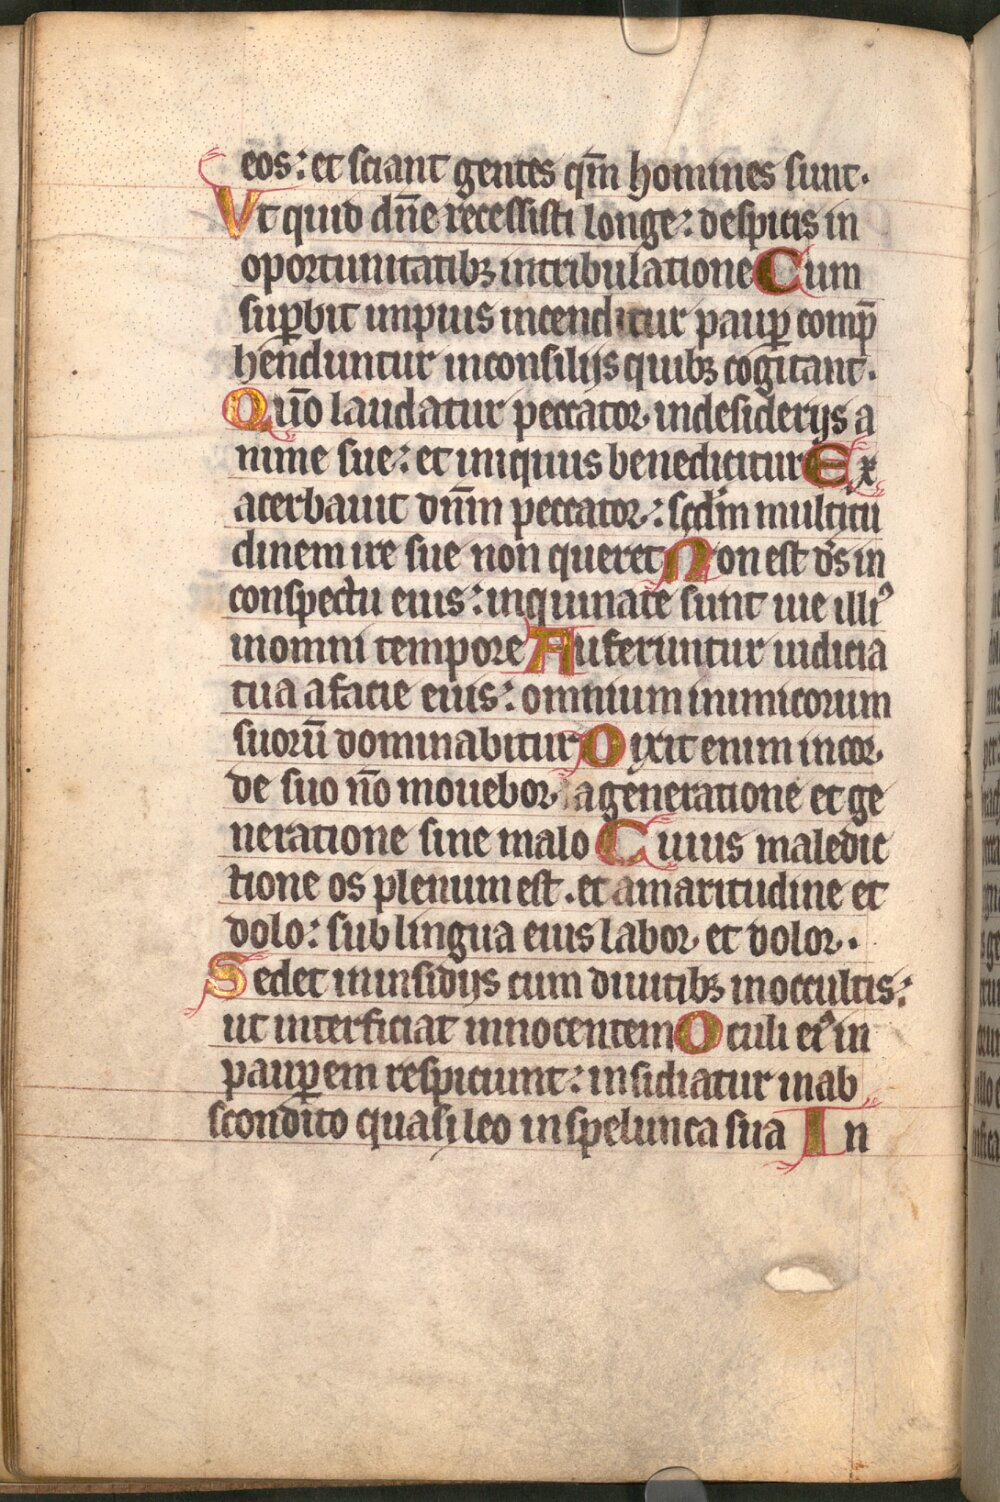 eos: et sciant gentes qm̄ homines sunt.
Vt quid dn̄e recessisti longe: despicis in
oportunitatibꝫ intribulatione Cum
suꝑbit impius incenditur pauꝑ comp̄
henduntur inconsilijs quibꝫ cogitant.
Quō laudatur peccator indesiderijs a
nime sue: et iniquus benedicitur Ex
acerbauit dn̄m peccator: scd̄m multitu
dinem ire sue non queret Non est ds̄ in
conspectu eius: inquinate sunt uie illiꝰ
inomni tempore Auferuntur iudicia
tua afacie eius: omnium inimicorum
suorū dominabitur Dixit enim incor
de suo nō mouebor ageneratione et ge
neratione sine malo Cuius maledic
tione os plenum est. et amaritudine et
dolo: sub lingua eius labor et dolor.
Sedet ininsidijs cum diuitibꝫ inoccultis:
ut interficiat innocentem Oculi eiꝰ in
pauꝑem respiciunt: insidiatur inab
scondito quasi leo inspelunca sua In